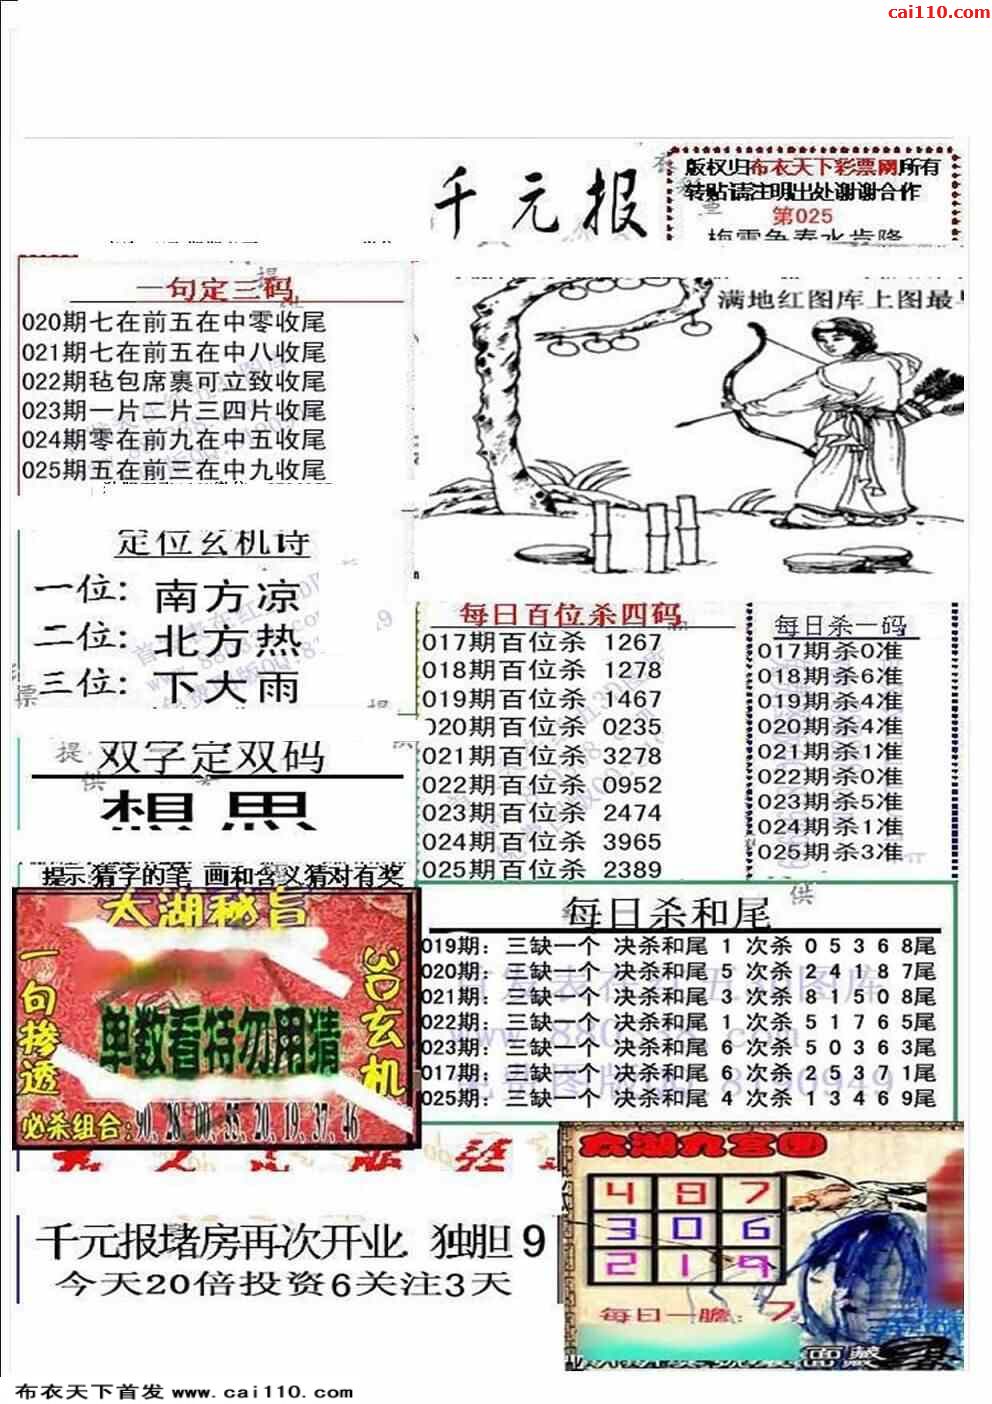 cai110.com
千元报
版权归布衣天下彩票网所有
转贴请注明出处谢谢合作
第025
一句定三码
020期七在前五在中零收尾
021期七在前五在中八收尾
022期毡包席裹可立致收尾
023期一片二片三四片收尾
024期零在前九在中五收尾
025期五在前三在中九收尾
满地红图库上图最
定位玄机诗
一位: 南方凉
二位: 北方热
三位: 下大雨
双字定双码
想思
提示:猜字的笔画和含义猜对有奖
每日百位杀四码
017期百位杀 1267
018期百位杀 1278
019期百位杀 1467
020期百位杀 0235
021期百位杀 3278
022期百位杀 0952
023期百位杀 2474
024期百位杀 3965
025期百位杀 2389
每日杀一码
017期杀0准
018期杀6准
019期杀4准
020期杀4准
021期杀1准
022期杀0准
023期杀5准
024期杀1准
025期杀3准
太湖秘旨
一句掺透
单数看特勿用猜
3D玄机
必杀组合:90,28,00,55,20,19,37,46
每日杀和尾
019期: 三缺一个 决杀和尾 1 次杀 0 5 3 6 8尾
020期: 三缺一个 决杀和尾 5 次杀 2 4 1 8 7尾
021期: 三缺一个 决杀和尾 3 次杀 8 1 5 0 8尾
022期: 三缺一个 决杀和尾 1 次杀 5 1 7 6 5尾
023期: 三缺一个 决杀和尾 6 次杀 5 0 3 6 3尾
017期: 三缺一个 决杀和尾 6 次杀 2 5 3 7 1尾
025期: 三缺一个 决杀和尾 4 次杀 1 3 4 6 9尾
千元报堵房再次开业. 独胆 9
今天20倍投资6关注3天
太湖九宫图
4 8 7
3 0 6
2 1 9
每日一胆: 7
布衣天下首发 www.cai110.com